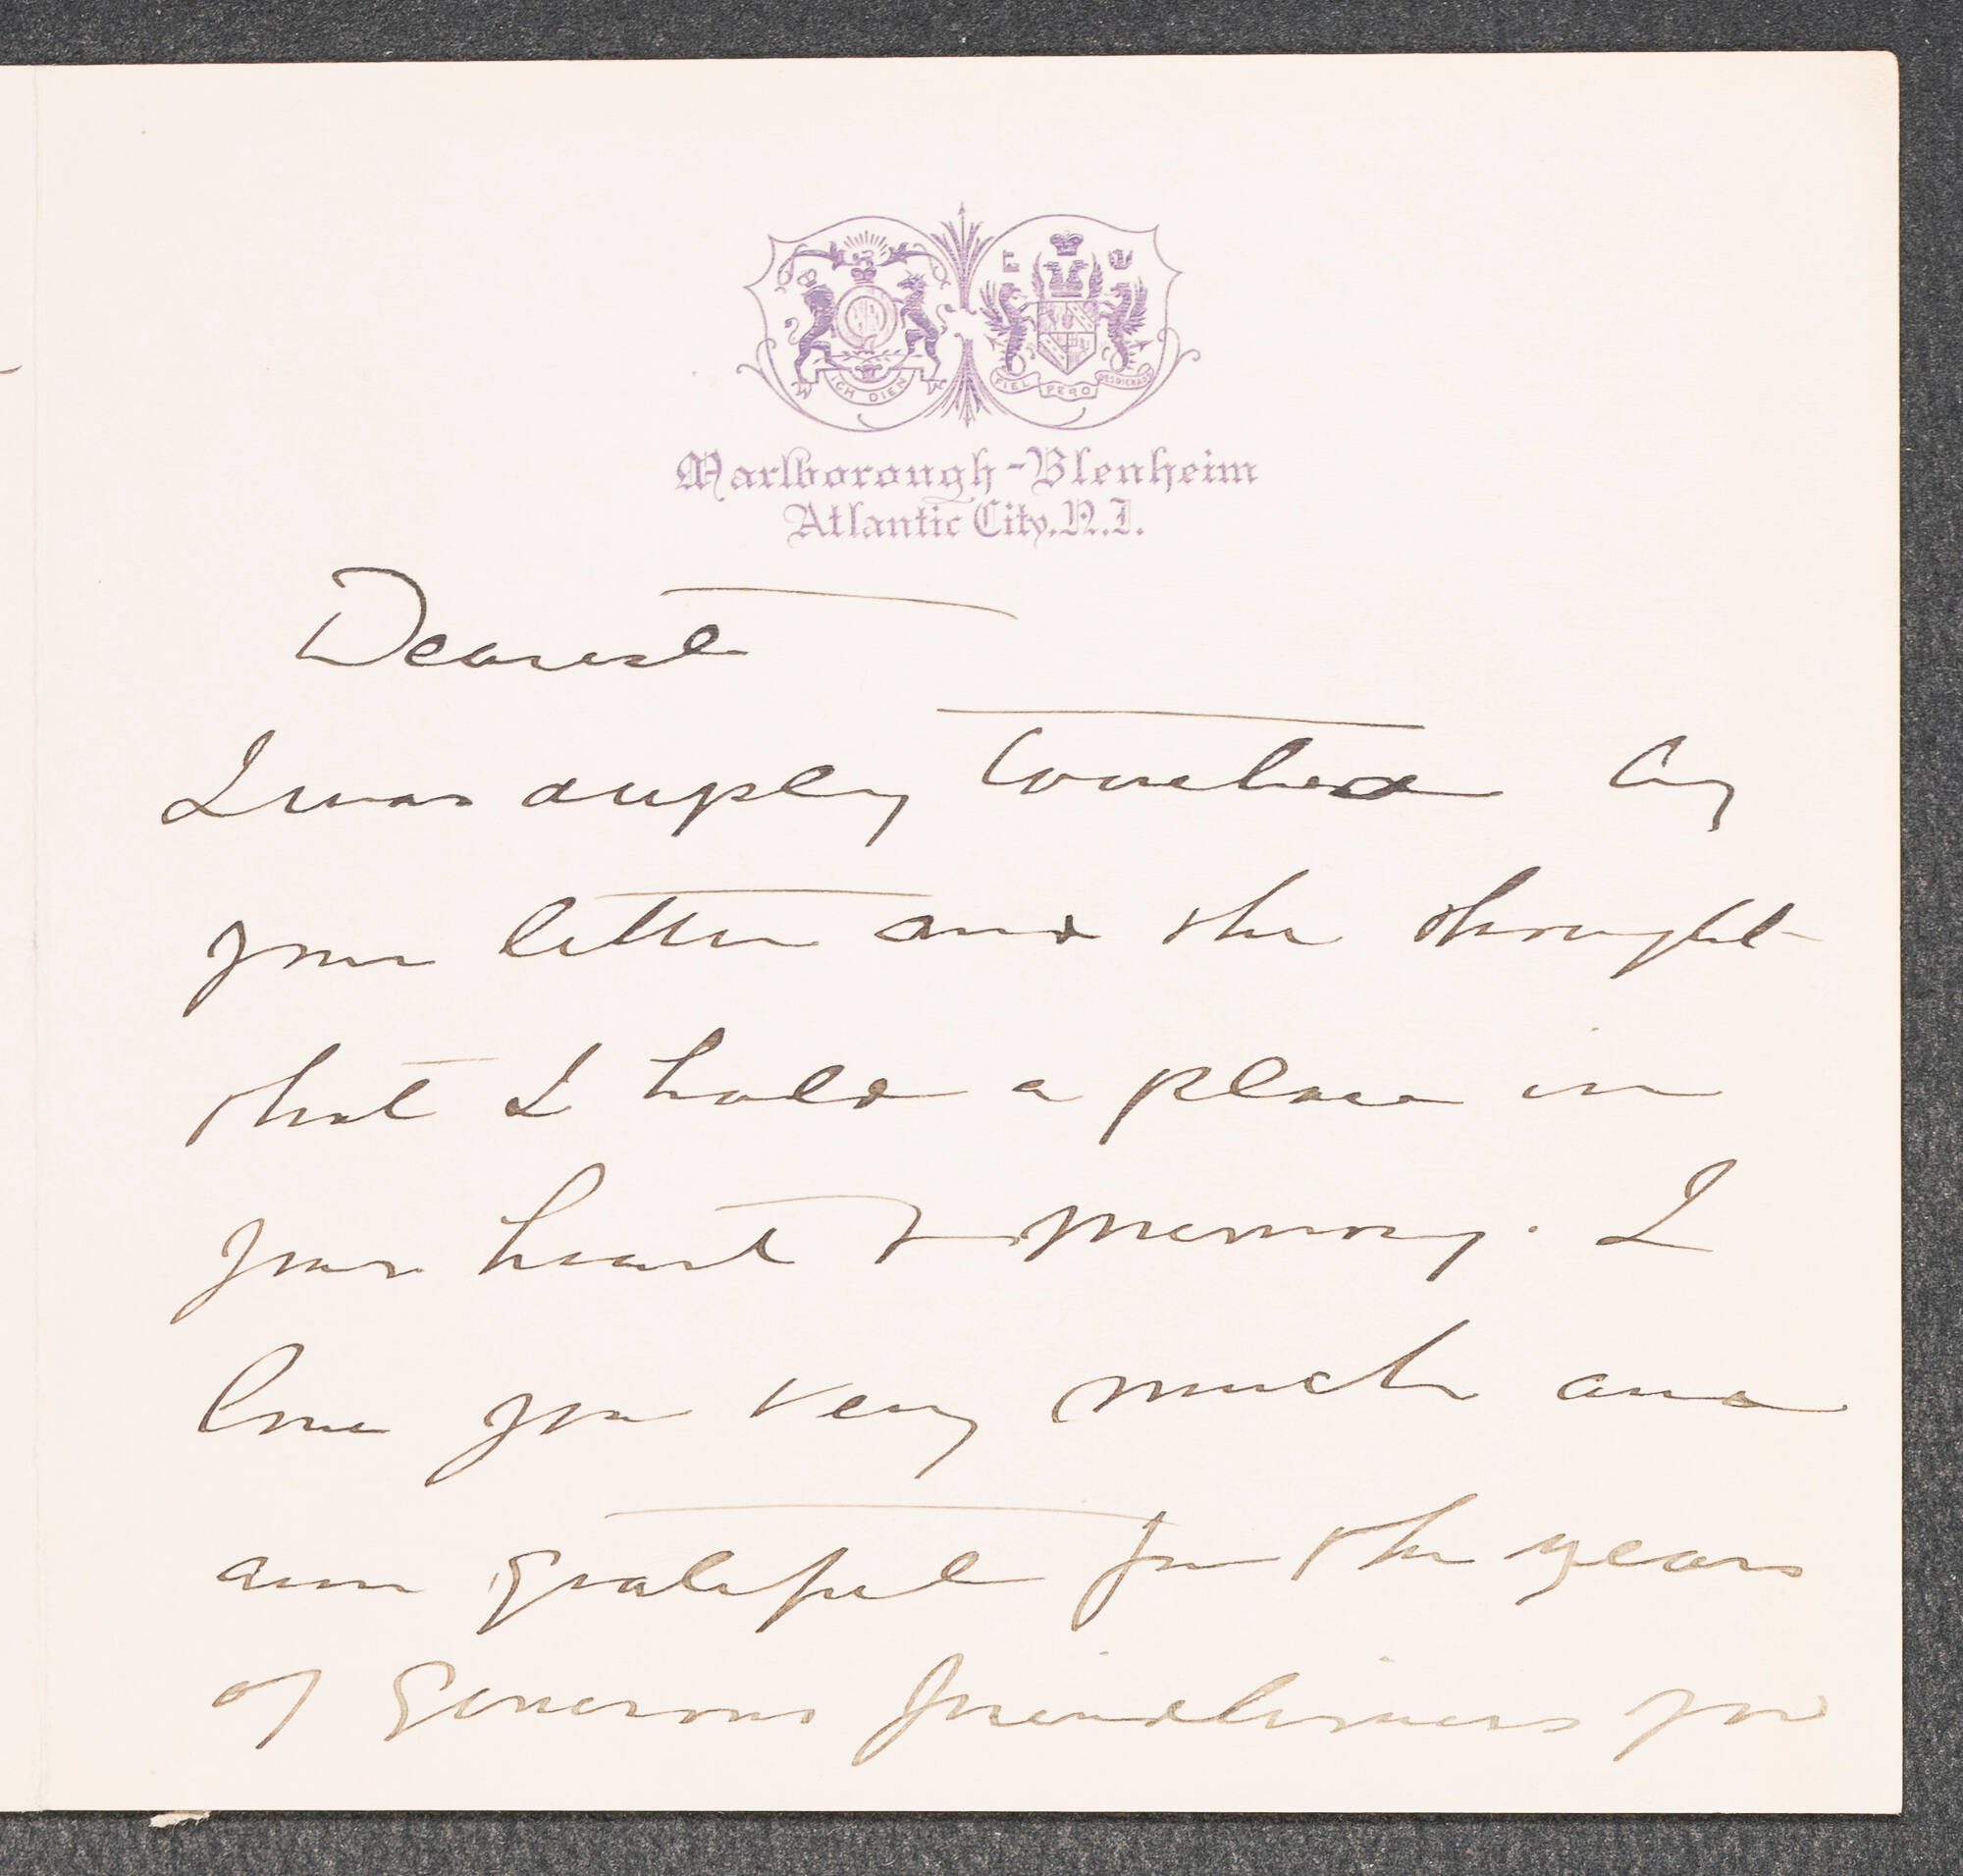 ICH DIEN
FIEL PERO DESDICHADO
Marlborough-Blenheim
Atlantic City, N.J.
Dearest
I was deeply touched by
your letter and the thought
that I hold a place in
your heart & memory. I
love you very much and
am grateful for the years
of generous friendliness you